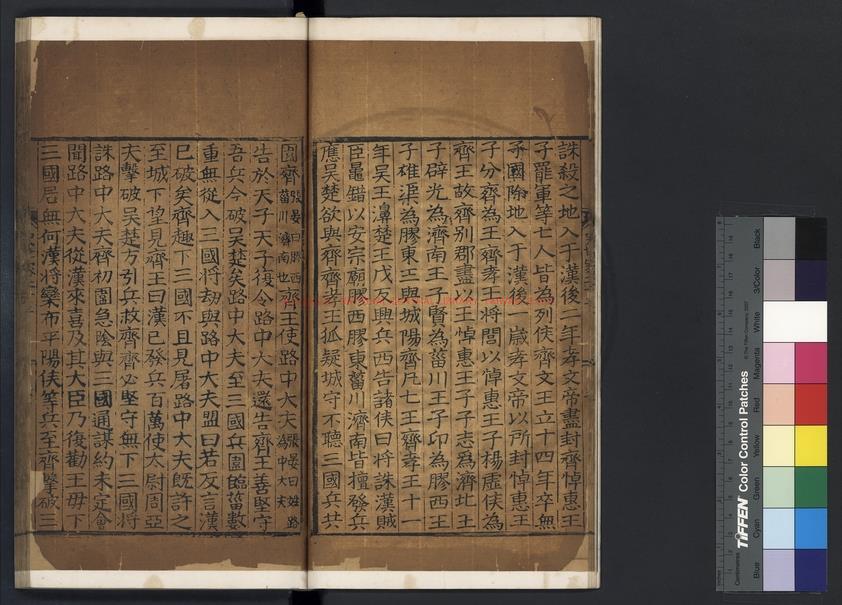 誅殺之地入于漢後二年孝文帝盡封齊悼惠王
子罷軍等七人皆為列侯齊文王立十四年卒無
子國除地入于漢後一歲孝文帝以所封悼惠王
子分齊為王齊孝王將閭以悼惠王子楊虛侯為
齊王故齊別郡盡以王悼惠王子子志為濟北王
子辟光為濟南王子賢為菑川王子卬為膠西王
子雄渠為膠東王與城陽齊凡七王齊孝王十一
年吳王濞楚王戊反興兵西告諸侯曰將誅漢賊
臣鼂錯以安宗廟膠西膠東菑川濟南皆擅發兵
應吳楚欲與齊齊孝王狐疑城守不聽三國兵共
圍齊張晏曰膠西菑川濟南也齊王使路中大夫張晏曰姓路為中大夫
告於天子天子復令路中大夫還告齊王善堅守
吾兵今破吳楚矣路中大夫至三國兵圍臨菑數
重無從入三國將劫與路中大夫盟曰若反言漢
已破矣齊趣下三國不且見屠路中大夫既許之
至城下望見齊王曰漢已發兵百萬使太尉周亞
夫擊破吳楚方引兵救齊齊必堅守無下三國將
誅路中大夫齊初圍急陰與三國通謀約未定會
聞路中大夫從漢來喜及其大臣乃復勸王毋下
三國居無何漢將欒布平陽侯等兵至齊擊破三
TIFFEN Color Control Patches
Blue
Cyan
Green
Yellow
Red
Magenta
White
3/Color
Black